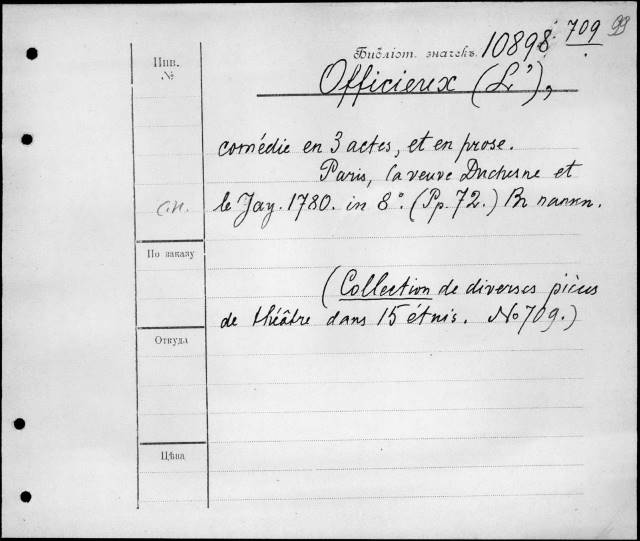 Инв.
№
Библіот. значекъ. 10898 709
Officieux (L'),
comédie en 3 actes, et en prose.
Paris, la veuve Duchesne et
le Jay. 1780. in 8°. (Pp. 72.) Въ папкп.
С.п.
По заказу
(Collection de diverses pièces
de théâtre dans 15 étuis. No 709.)
Откуда
Цѣна